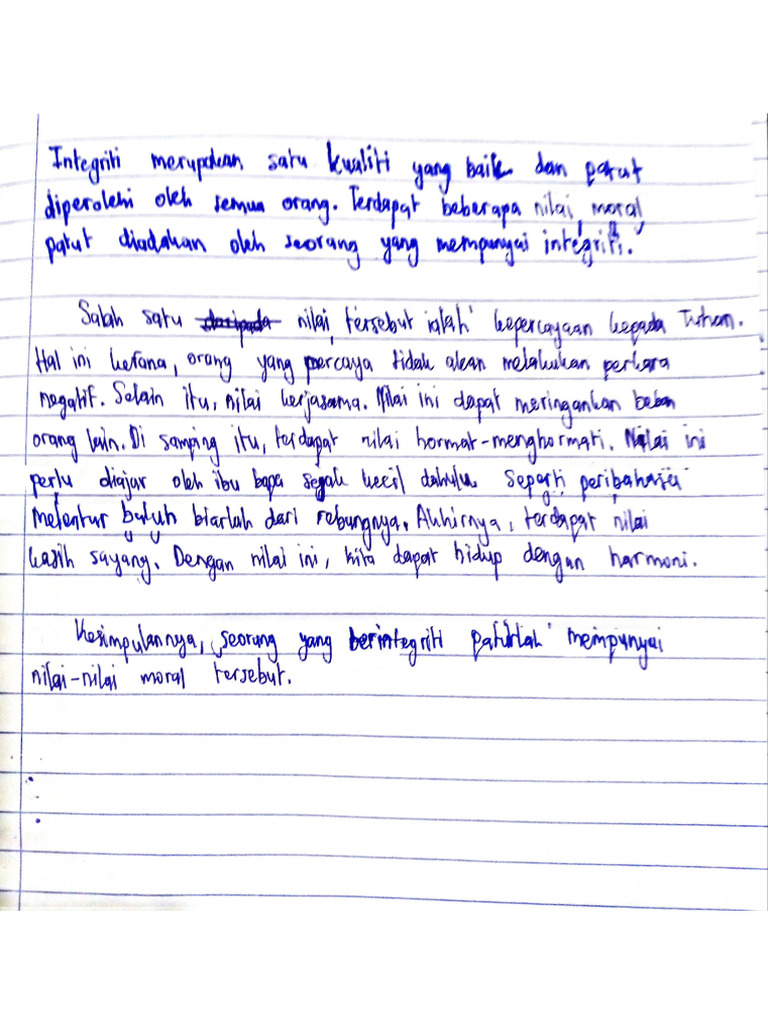 Integriti merupakan satu kualiti yang baik dan patut
diperolehi oleh semua orang. Terdapat beberapa nilai moral
patut diadakan oleh seorang yang mempunyai integriti.
Salah satu daripada nilai tersebut ialah kepercayaan kepada Tuhan.
Hal ini kerana, orang yang percaya tidak akan melakukan perkara
negatif. Selain itu, nilai kerjasama. Nilai ini dapat meringankan beban
orang lain. Di samping itu, terdapat nilai hormat-menghormati. Nilai ini
perlu diajar oleh ibu bapa sejak kecil dahulu seperti peribahasa
melentur buluh biarlah dari rebungnya. Akhirnya, terdapat nilai
kasih sayang. Dengan nilai ini, kita dapat hidup dengan harmoni.
Kesimpulannya, seorang yang berintegriti patutlah mempunyai
nilai-nilai moral tersebut.